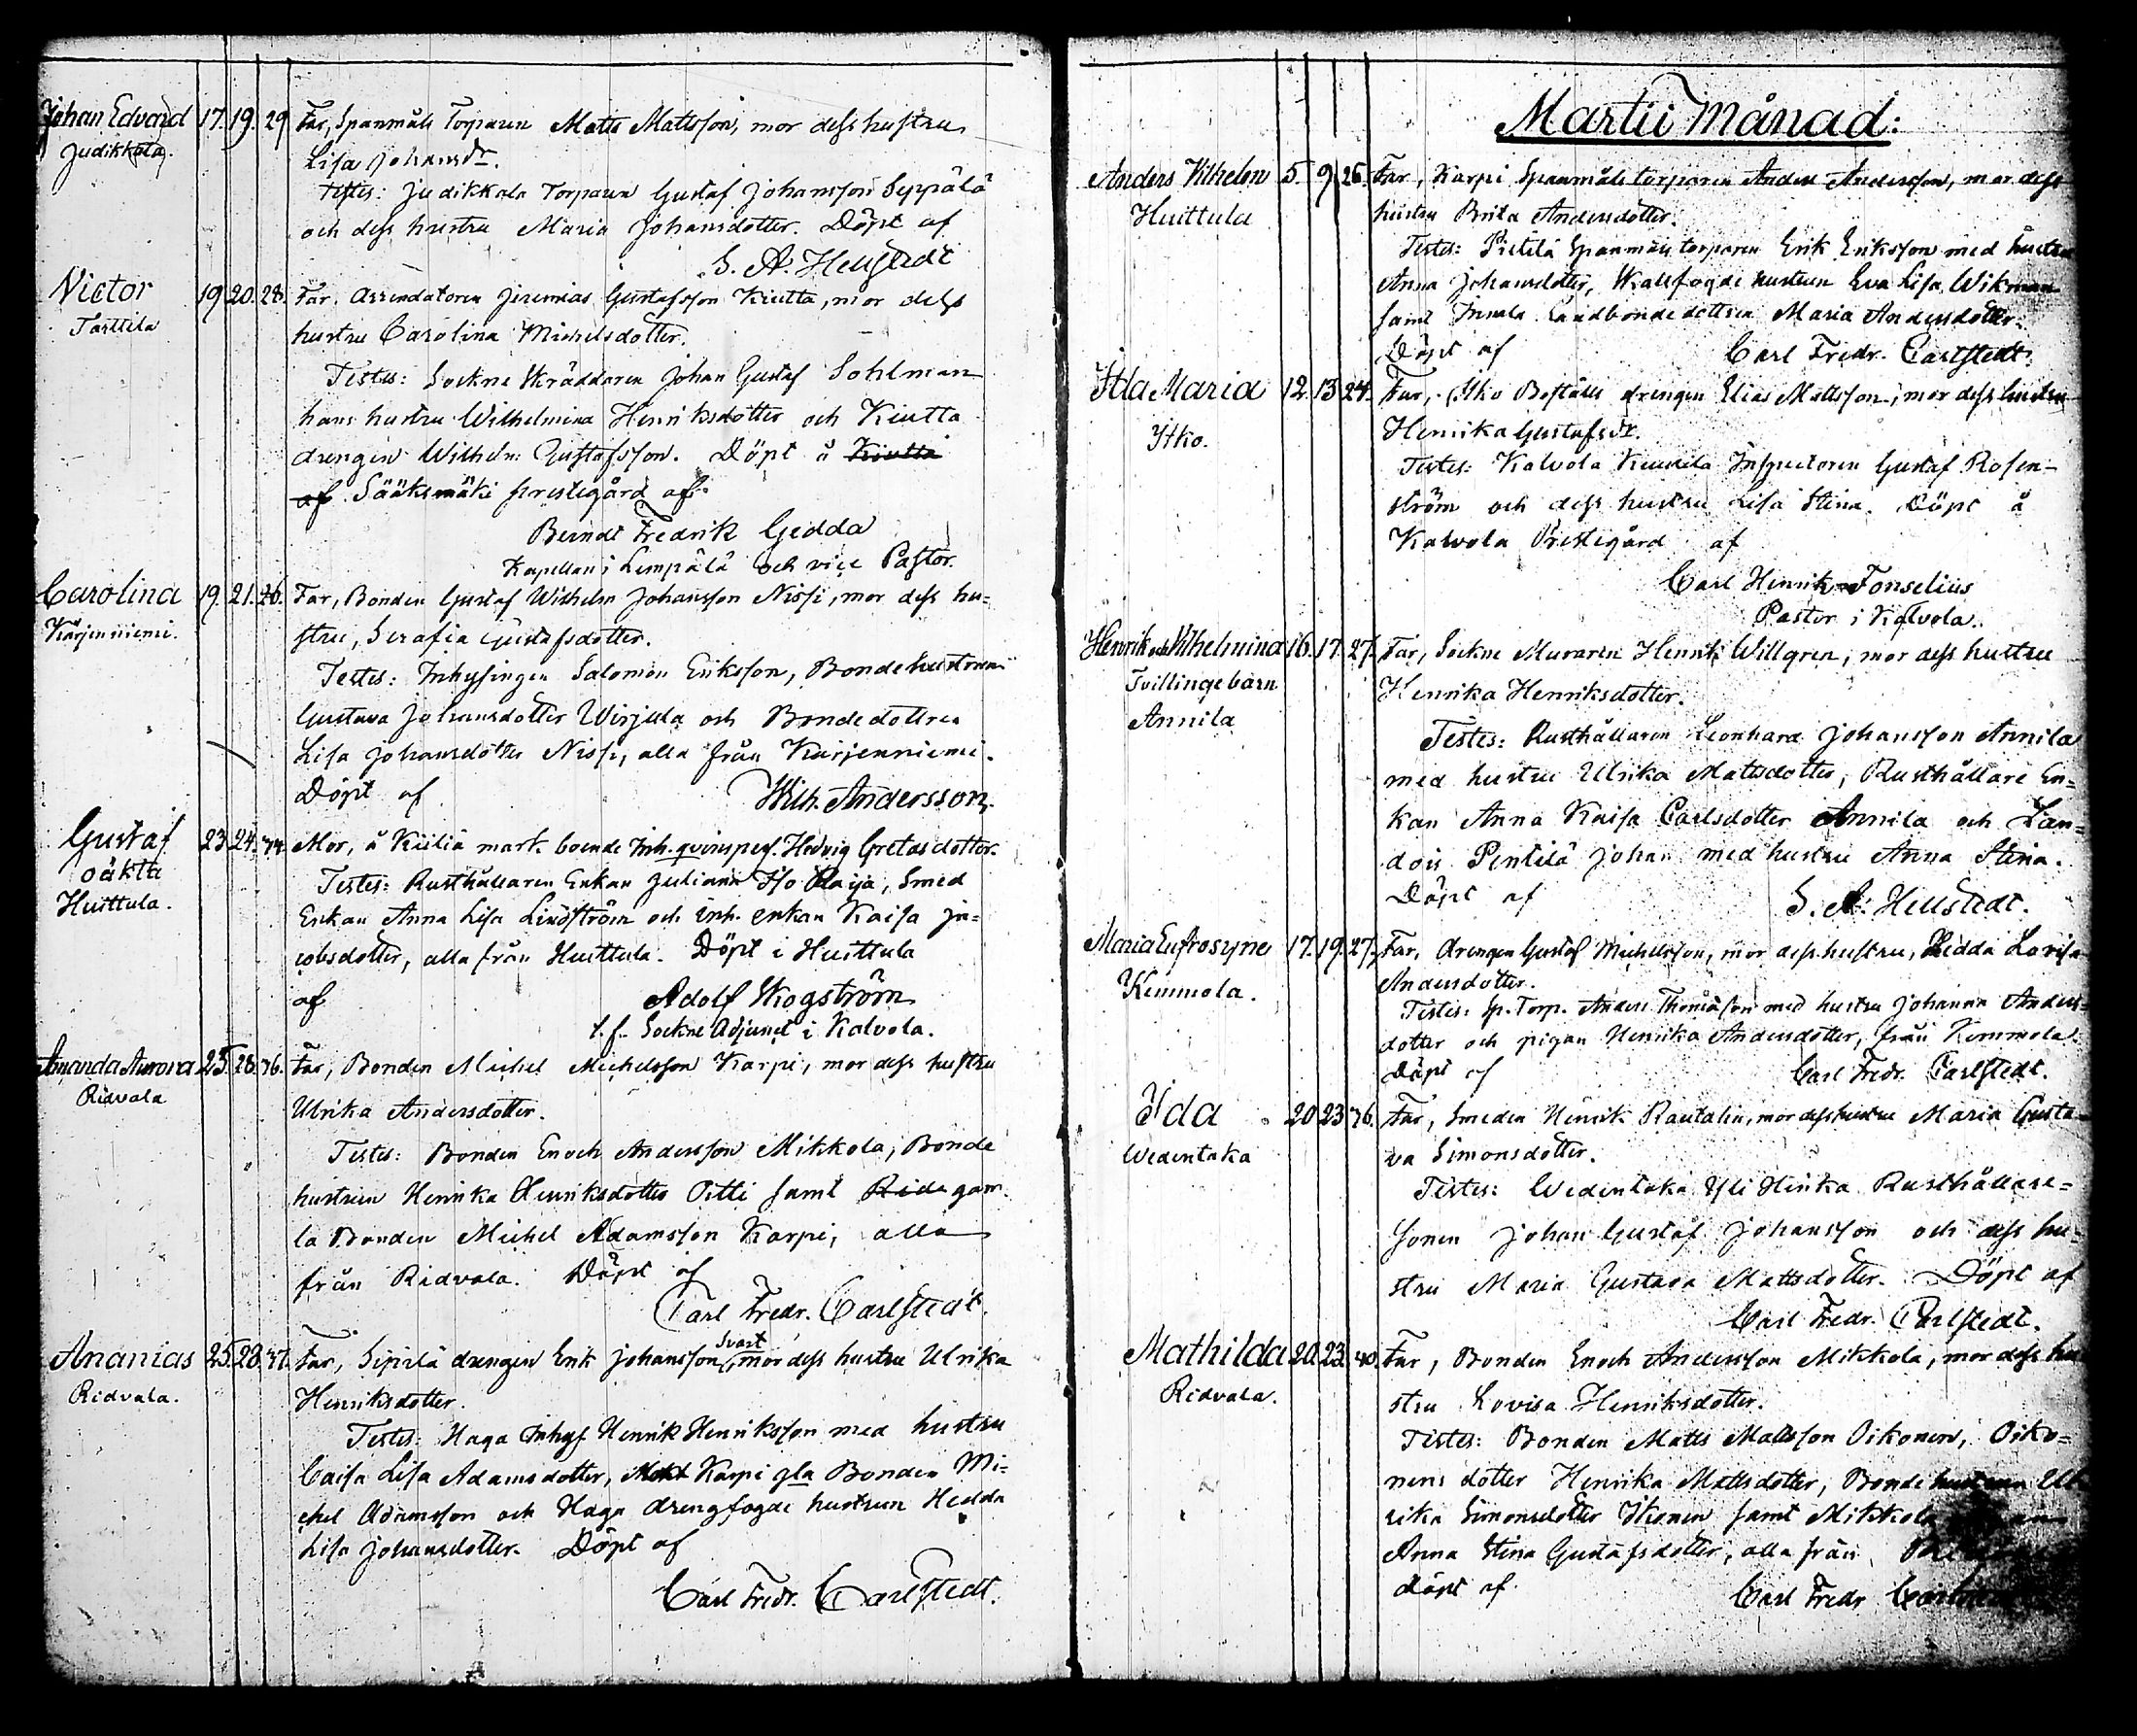 Johan Edvard 17. 19. 29 Far, Spanmåls Torparen Matts Mattsson, mor dess hustru
Judikkala. Lisa Johansdr.
Testes: Judikkala Torparen Gustaf Johansson Seppälä
och dess hustru Maria Johansdotter. Döpt af
S. A. Hellstedt
Victor 19 20. 28. Far, Arrendatoren Jeremias Gustafsson Kiutta, mor dess
Tarttila hustru Carolina Michelsdotter.
Testes: Sockne Skräddaren Johan Gustaf Sohlman
hans hustru Wilhelmina Henriksdotter och Kiutta
drengen Wilhelm Gustafsson. Döpt å Kiutta
af Sääksmäki prestegård af
Berndt Fredrik Gedda
Kapellan i Lempälä och vice Pastor.
Carolina 19. 21. 26. Far, Bonden Gustaf Wilhelm Johansson Nissi, mor dess hu-
Kärjenniemi. stru, Serafia Gustafsdotter.
Testes: Inhysingen Salomon Eriksson, Bondehustrun
Gustava Johansdotter Wirjula och Bondedottren
Lisa Johansdotter Nissi, alla från Kärjenniemi.
Döpt af Wilh. Andersson.
Gustaf 23. 24. 44. Mor, å Kiiliä mark boende Inh. qvinspers. Hedvig Gretasdotter.
oäkta Testes: Rusthållaren Enkan Juliana Iso Raija, Smed
Huittula. Enkan Anna Lisa Lindström och inh. enkan Kaisa Ja-
cobsdotter, alla från Huittula. Döpt i Huittula
af Adolf Skogström
t.f. Sockne Adjunct i Kalvola.
Amanda Aurora 25. 28. 36. Far, Bonden Michel Michelsson Karpi, mor dess hustru
Ridvala Ulrika Andersdotter.
Testes: Bonden Enoch Andersson Mikkola, Bonde
hustrun Henrika Henriksdotter Oitti samt Rida gam-
la Bonden Michel Adamsson Karpi, alla
från Ridvala. Döpt af
Carl Fredr. Carlstedt.
Ananias 25. 28. 47. Far, Sipilä drengen Erik Johansson Svart mor dess hustru Ulrika
Ridvala. Henriksdotter.
Testes: Haga Inhys Henrik Henriksson med hustru
Caisa Lisa Adamsdotter, Karpi gla Bonden Mi-
chel Adamsson och Haga drengfogde hustrun Hedda
Lisa Johansdotter. Döpt af
Carl Fredr. Carlstedt.
Martii Månad:
Anders Vilhelm 5. 9. 26. Far, Karpi Spanmåls torparen Anders Andersson, mor dess
Huittula hustru Brita Andersdotter.
Testes: Pietilä Spanmåls torparen Erik Eriksson med hustru
Anna Johansdotter, Skallfogde hustrun Eva Lisa Wikman
samt Landbonde dottren Maria Andersdotter.
Döpt af Carl Fredr. Carlstedt.
Ida Maria 12. 13 24. Far, Itko Beställs drengen Elias Mattsson, mor dess hustru
Ytko. Henrika Gustafsdr.
Testes: Kalvola Inspectoren Gustaf Rosen-
ström och dess hustru Lisa Stina. Döpt å
Kalvola Prestegård af
Carl Henrik Fonselius
Pastor i Kalvola.
Henrik och Vilhelmina 16. 17. 27. Far, Sockne Muraren Henrik Willgren, mor dess hustru
Tvillingebarn Henrika Henriksdotter.
Annila Testes: Rusthållaren Leonhard Johansson Annila
med hustru Ulrika Mattsdotter, Rusthållare En-
kan Anna Kaisa Carlsdotter Annila och Lan-
dois Pentilä Johan med hustru Anna Stina.
Döpt af S. A. Hellstedt.
Maria Eufrosyne 17. 19. 27. Far, drengen Gustaf Michelsson, mor dess hustru, Hedda Lovisa
Kemmola. Andersdotter.
Testes: Sp. Torp. Anders Thomasson med hustru Johanna Anders-
dotter och pigan Henrika Andersdotter, från Kemmola.
Döpt af Carl Fredr. Carlstedt.
Ida 20 23 36. Far, Smeden Henrik Rautalin, mor dess hustru Maria Gusta-
Wedentaka va Simonsdotter.
Testes: Wedentaka Yli Hirika Rusthållare-
sonen Johan Gustaf Johansson och dess hu-
stru Maria Gustava Mattsdotter. Döpt af
Carl Fredr. Carlstedt.
Mathilda 20. 23. 40. Far, Bonden Enoch Andersson Mikkola, mor dess hu
Ridvala. stru Lovisa Henriksdotter.
Testes: Bonden Matts Mattsson Oikonen, Oiko-
nens dotter Henrika Mattsdotter, Bonde hustrun Ul
rika Simonsdotter Ikonen samt Mikkola
Anna Stina Gustafsdotter, alla från
Döpt af Carl Fredr